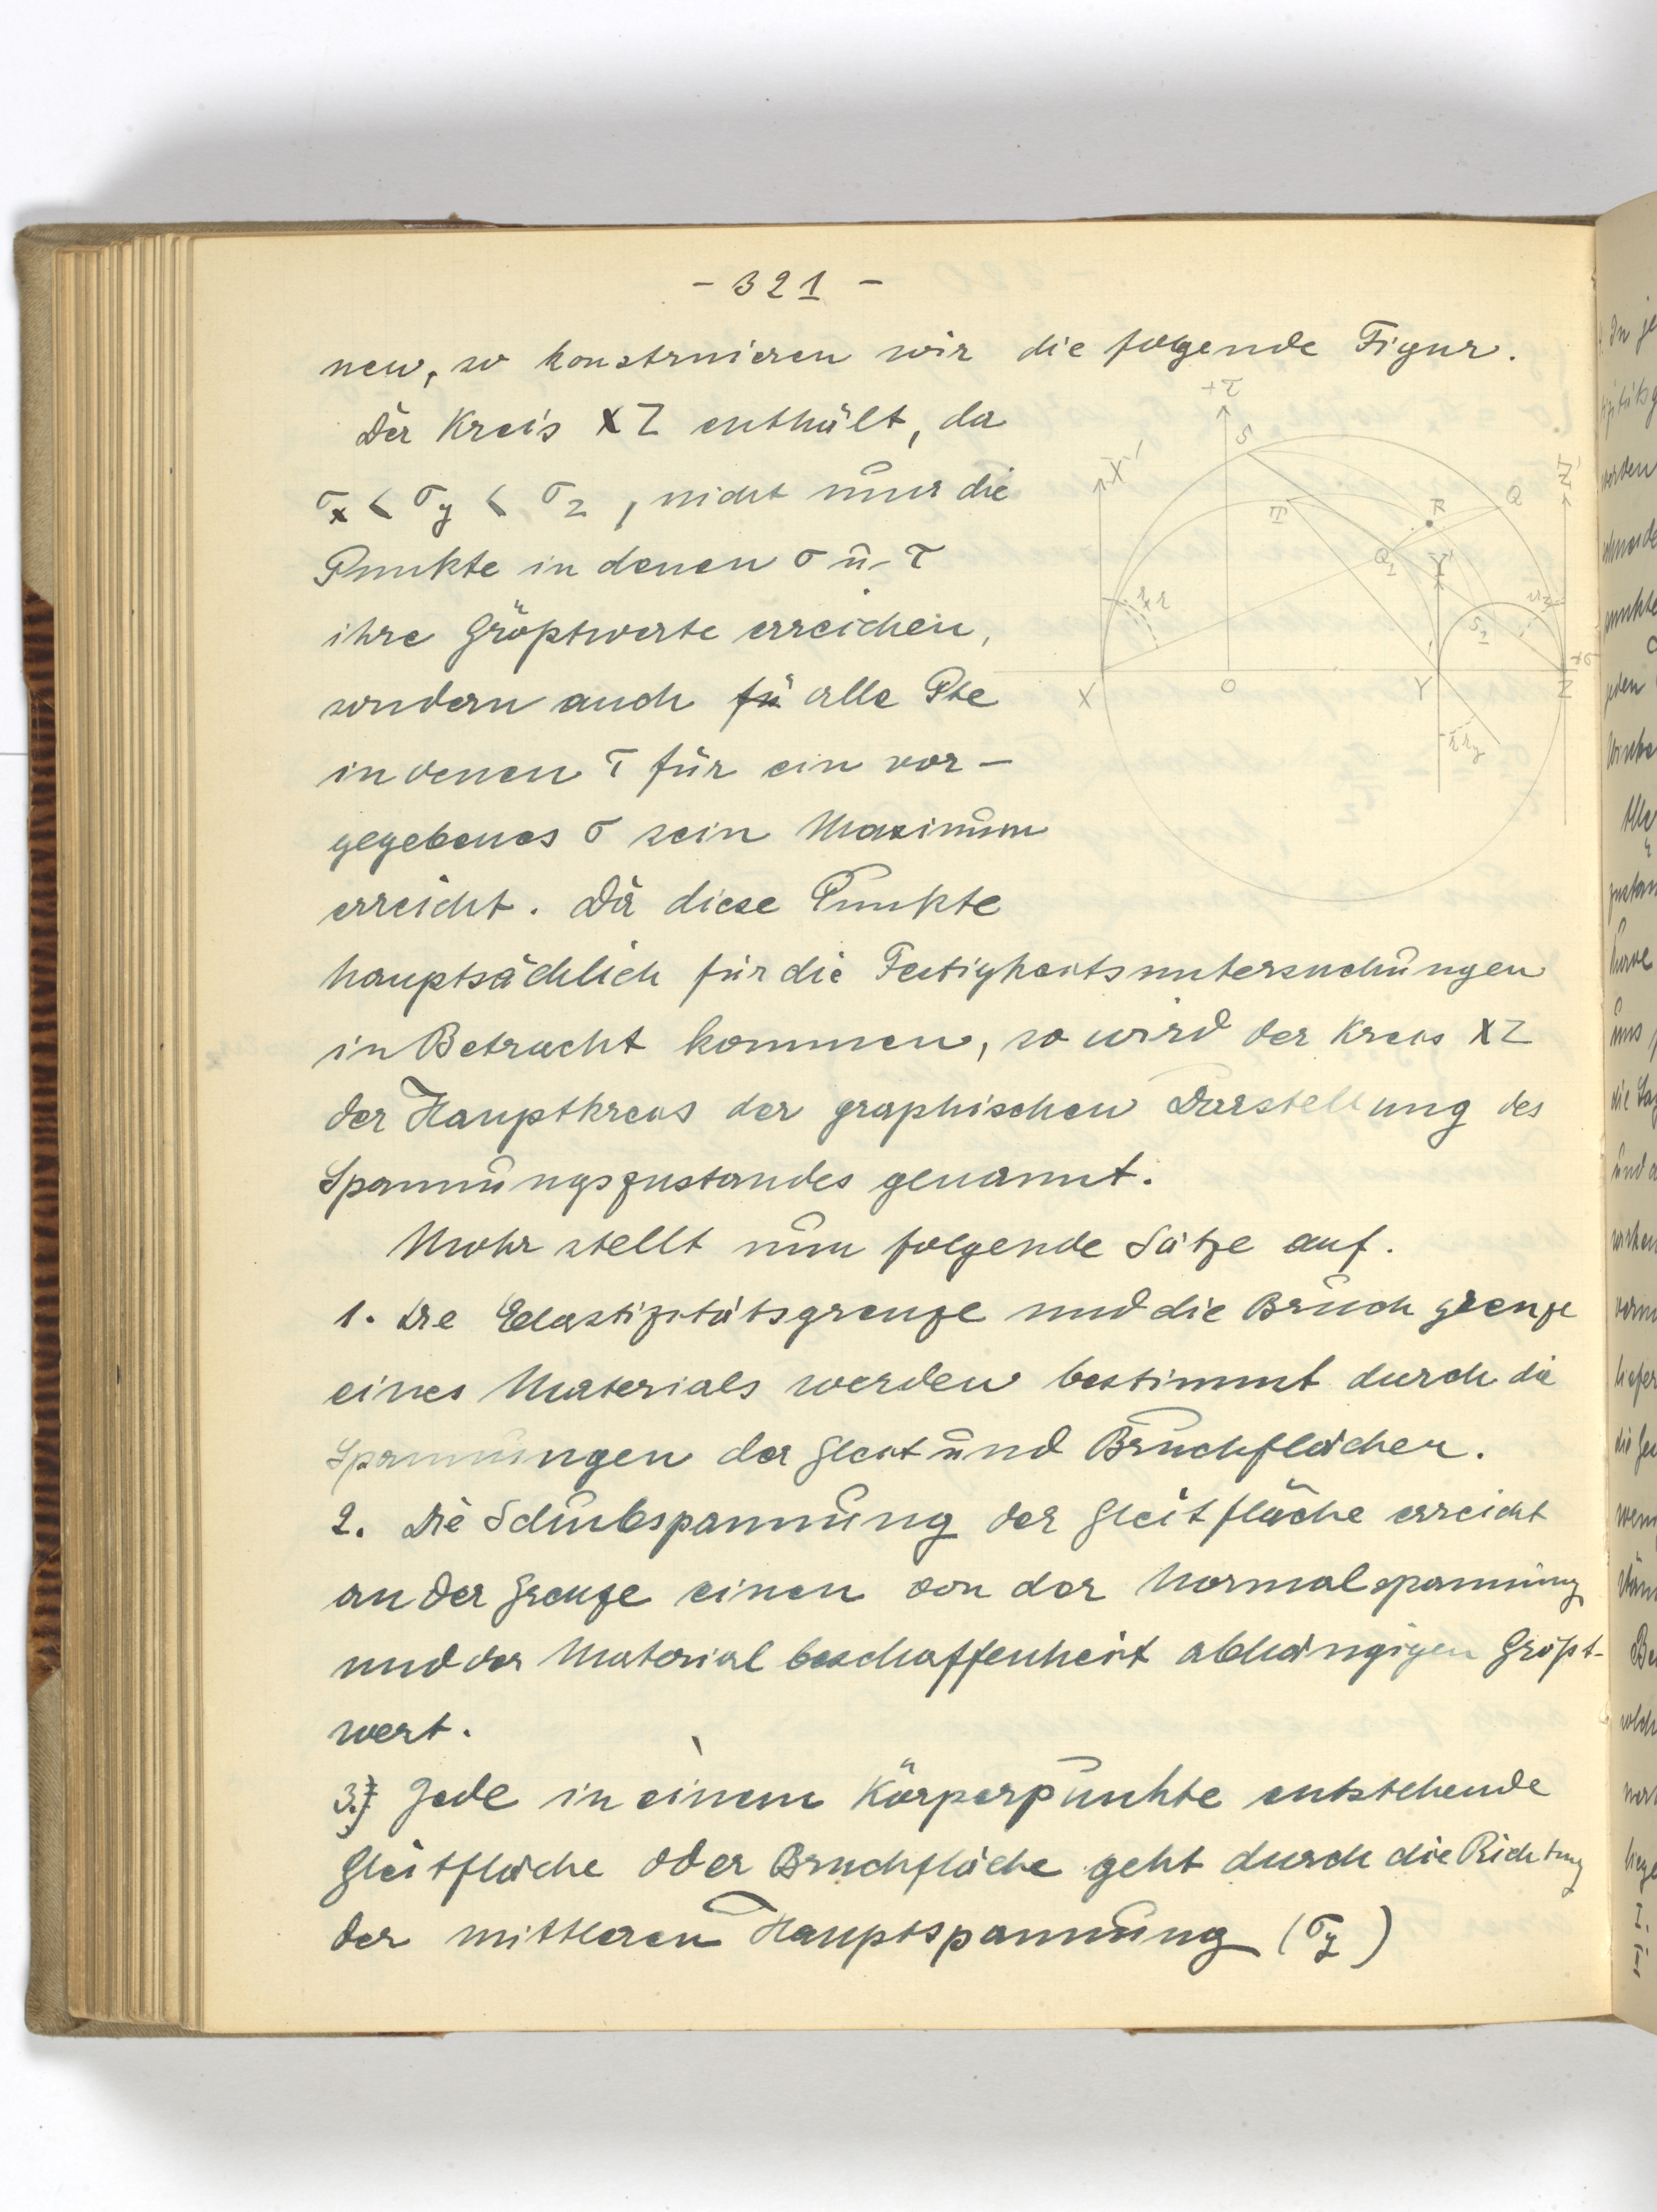 - 321 -
nen, so konstruieren wir die folgende Figur.
Der Kreis XZ enthält, da
σx < σy < σz, nicht nur die
Punkte in denen σ u. τ
ihre Größtwerte erreichen,
sondern auch fü alle Pte
in denen τ für ein vor-
gegebenes σ sein Maximum
erreicht. Da diese Punkte
hauptsächlich für die Festigkeitsuntersuchungen
in Betracht kommen, so wird der Kreis XZ
der Hauptkreis der graphischen Darstellung des
Spannungszustandes genannt.
Mohr stellt nun folgende Sätze auf.
1. Die Elastizitätsgrenze und die Bruch grenze
eines Materials werden bestimmt durch die
Spannungen der Gleit und Bruchflächen.
2. Die Schubspannung der Gleitfläche erreicht
an der Grenze einen von der Normalspannung
und der Materialbeschaffenheit abhängigen Größt-
wert.
3.) Jede in einem Körperpunkte entstehende
Gleitfläche oder Bruchfläche geht durch die Richtung
der mittleren Hauptspannung (σy)
+τ
S
X'
Z'
T
R
Q
Q1
Y'
S1
X
O
Y
Z
+σ